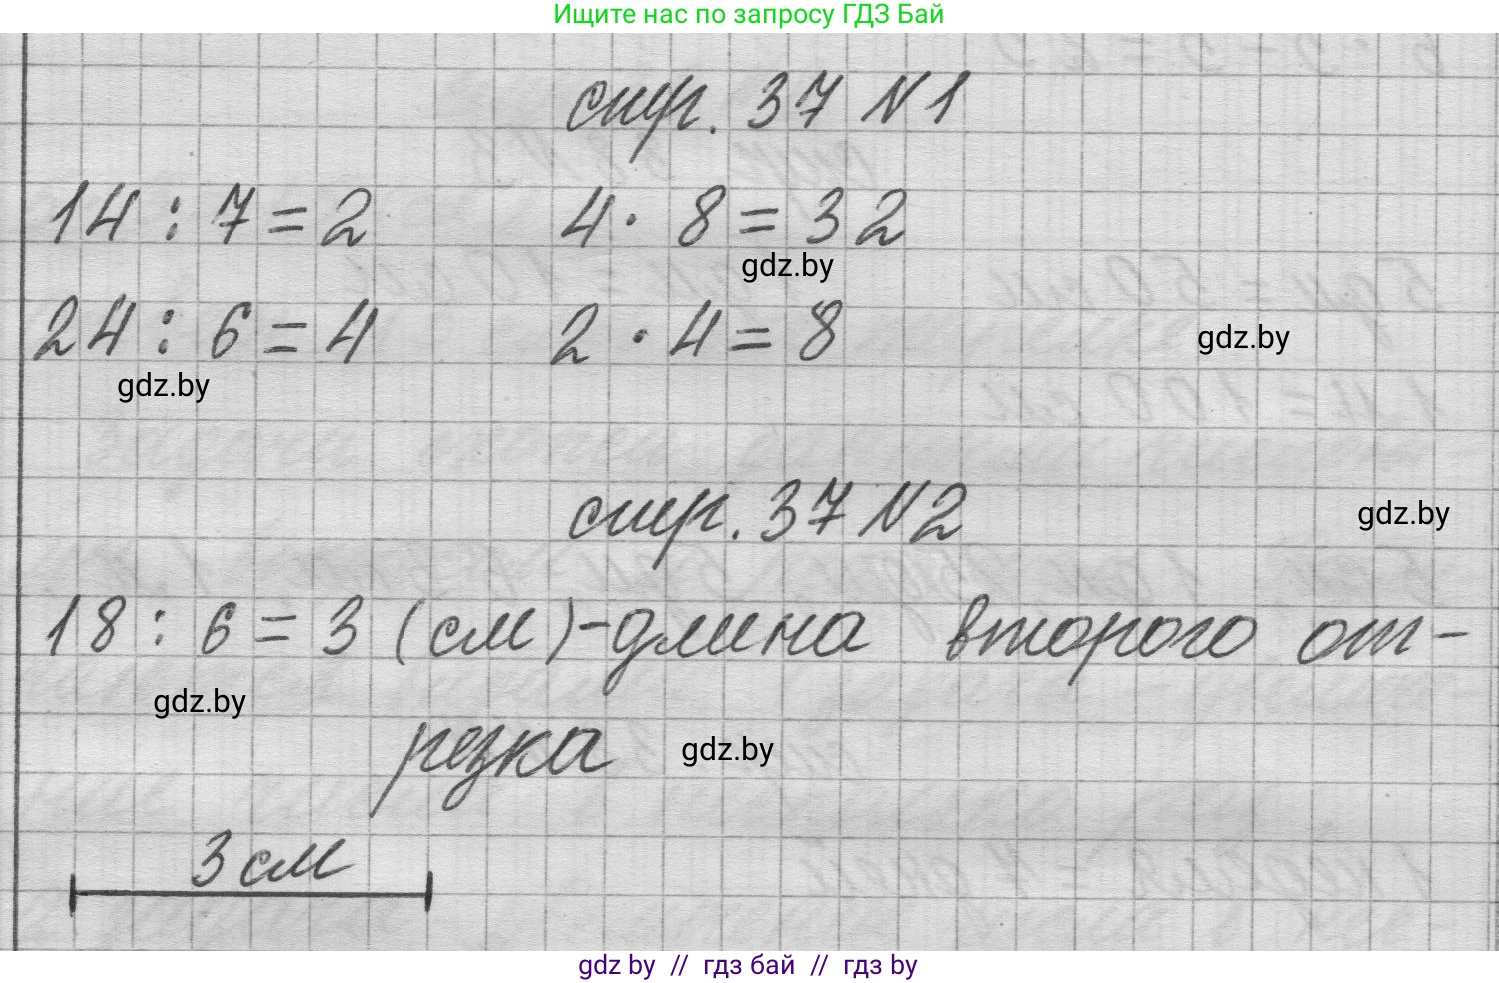 Ищите нас по запросу ГДЗ Бай
стр. 37 N1
14 : 7 = 2 4 · 8 = 32
gdz.by
24 : 6 = 4 2 · 4 = 8
gdz.by
gdz.by
стр. 37 N2
gdz.by
18 : 6 = 3 (см) - длина второго от-
gdz.by
резка
gdz.by
3 см
gdz by // гдз бай // гдз by